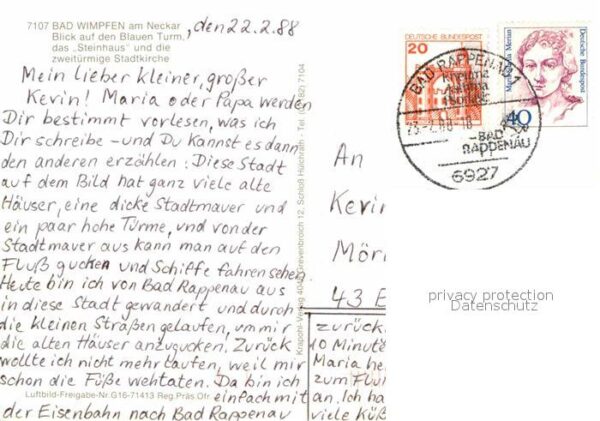 7107 BAD WIMPFEN am Neckar
Blick auf den Blauen Turm,
das „Steinhaus" und die
zweitürmige Stadtkirche
, den 22.2.88
Mein lieber kleiner, großer
Kevin! Maria oder Papa werden
Dir bestimmt vorlesen, was ich
Dir schreibe – und Du kannst es dann
den anderen erzählen: Diese Stadt
auf dem Bild hat ganz viele alte
Häuser, eine dicke Stadtmauer und
ein paar hohe Türme, und von der
Stadtmauer aus kann man auf den
Fluß gucken und Schiffe fahren sehen
Heute bin ich von Bad Rappenau aus
in diese Stadt gewandert und durch
die kleinen Straßen gelaufen, um mir
die alten Häuser anzugucken. Zurück
wollte ich nicht mehr laufen, weil mir
schon die Füße wehtaten. Da bin ich
einfach mit
der Eisenbahn nach Bad Rappenau
Luftbild-Freigabe-Nr. G16-71413 Reg.Präs.
Krapohl-Verlag 404 Grevenbroich 12, Schloß Hülchrath · Tel. 7104
zurück
10 Minute
Maria he
zum Fluß
an. Ich ha
viele Küß
An
Kevin
Mör
43 E
20
DEUTSCHE BUNDESPOST
Maria Sibylla Merian
Deutsche Bundespost
40
BAD RAPPENAU 1
Rheuma
Asthma
-BAD
RAPPENAU
6927
privacy protection
Datenschutz